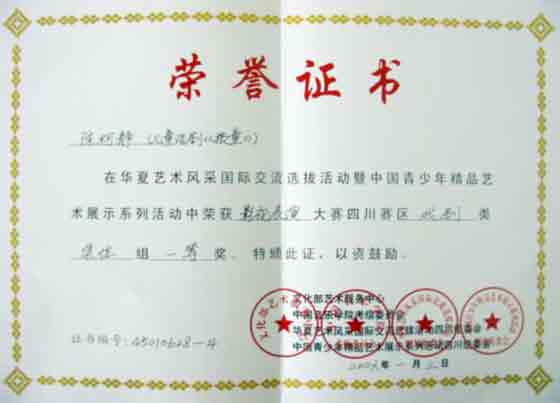 荣誉证书
陈柯静 儿童话剧
在华夏艺术风采国际交流选拔活动暨中国青少年精品艺
术展示系列活动中荣获 影视表演 大赛四川赛区 戏剧 类
集体 组 一等 奖。特颁此证,以资鼓励。
文化部艺术服务中心
中国音乐学院考级委员会
华夏艺术风采国际交流选拔活动四川组委会
中国青少年精品艺术展示系列活动四川组委会
证书编号:
一月